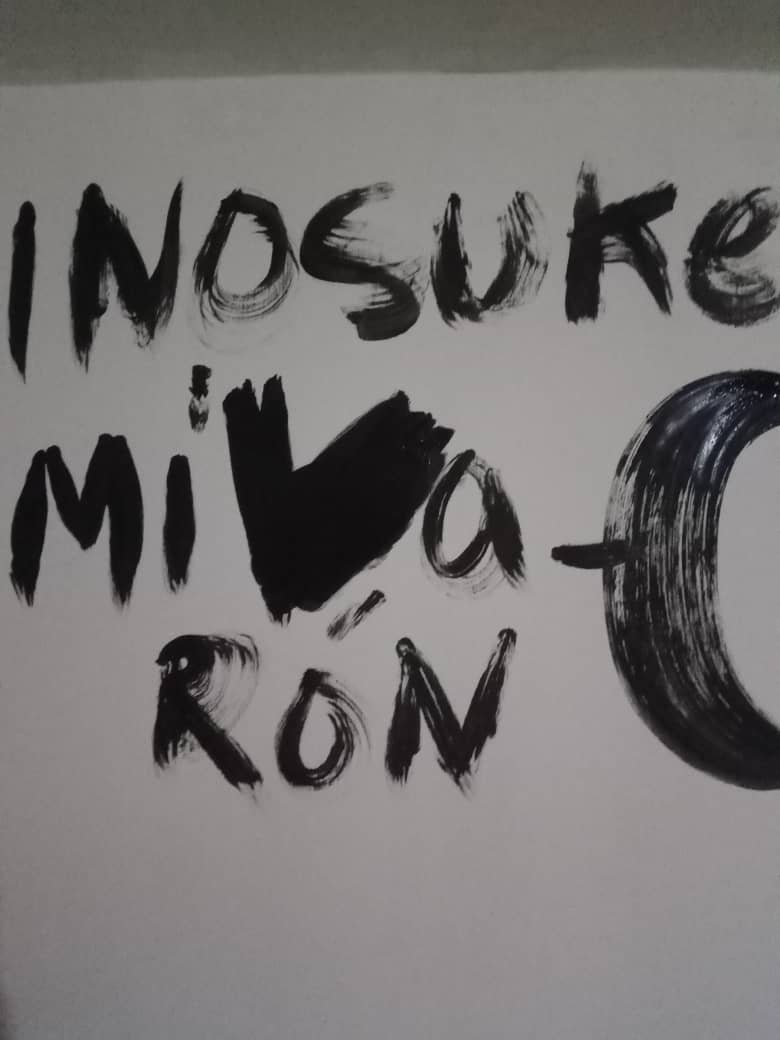 INOSUKe
MiVa
RÓN